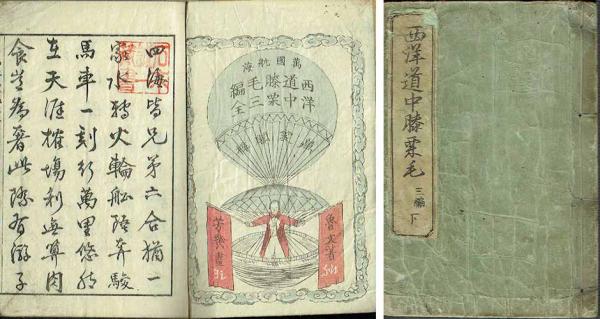 西洋道中膝栗毛
三編
下
萬國航海
西洋
道中
膝栗
毛三
編全
魯文著
芳幾畫
四海皆兄弟六合猶一
家水轉火輪船陸奔駿
馬車一刻行萬里悠然
在天涯榷場利無算肉
食豈為著此際有游子